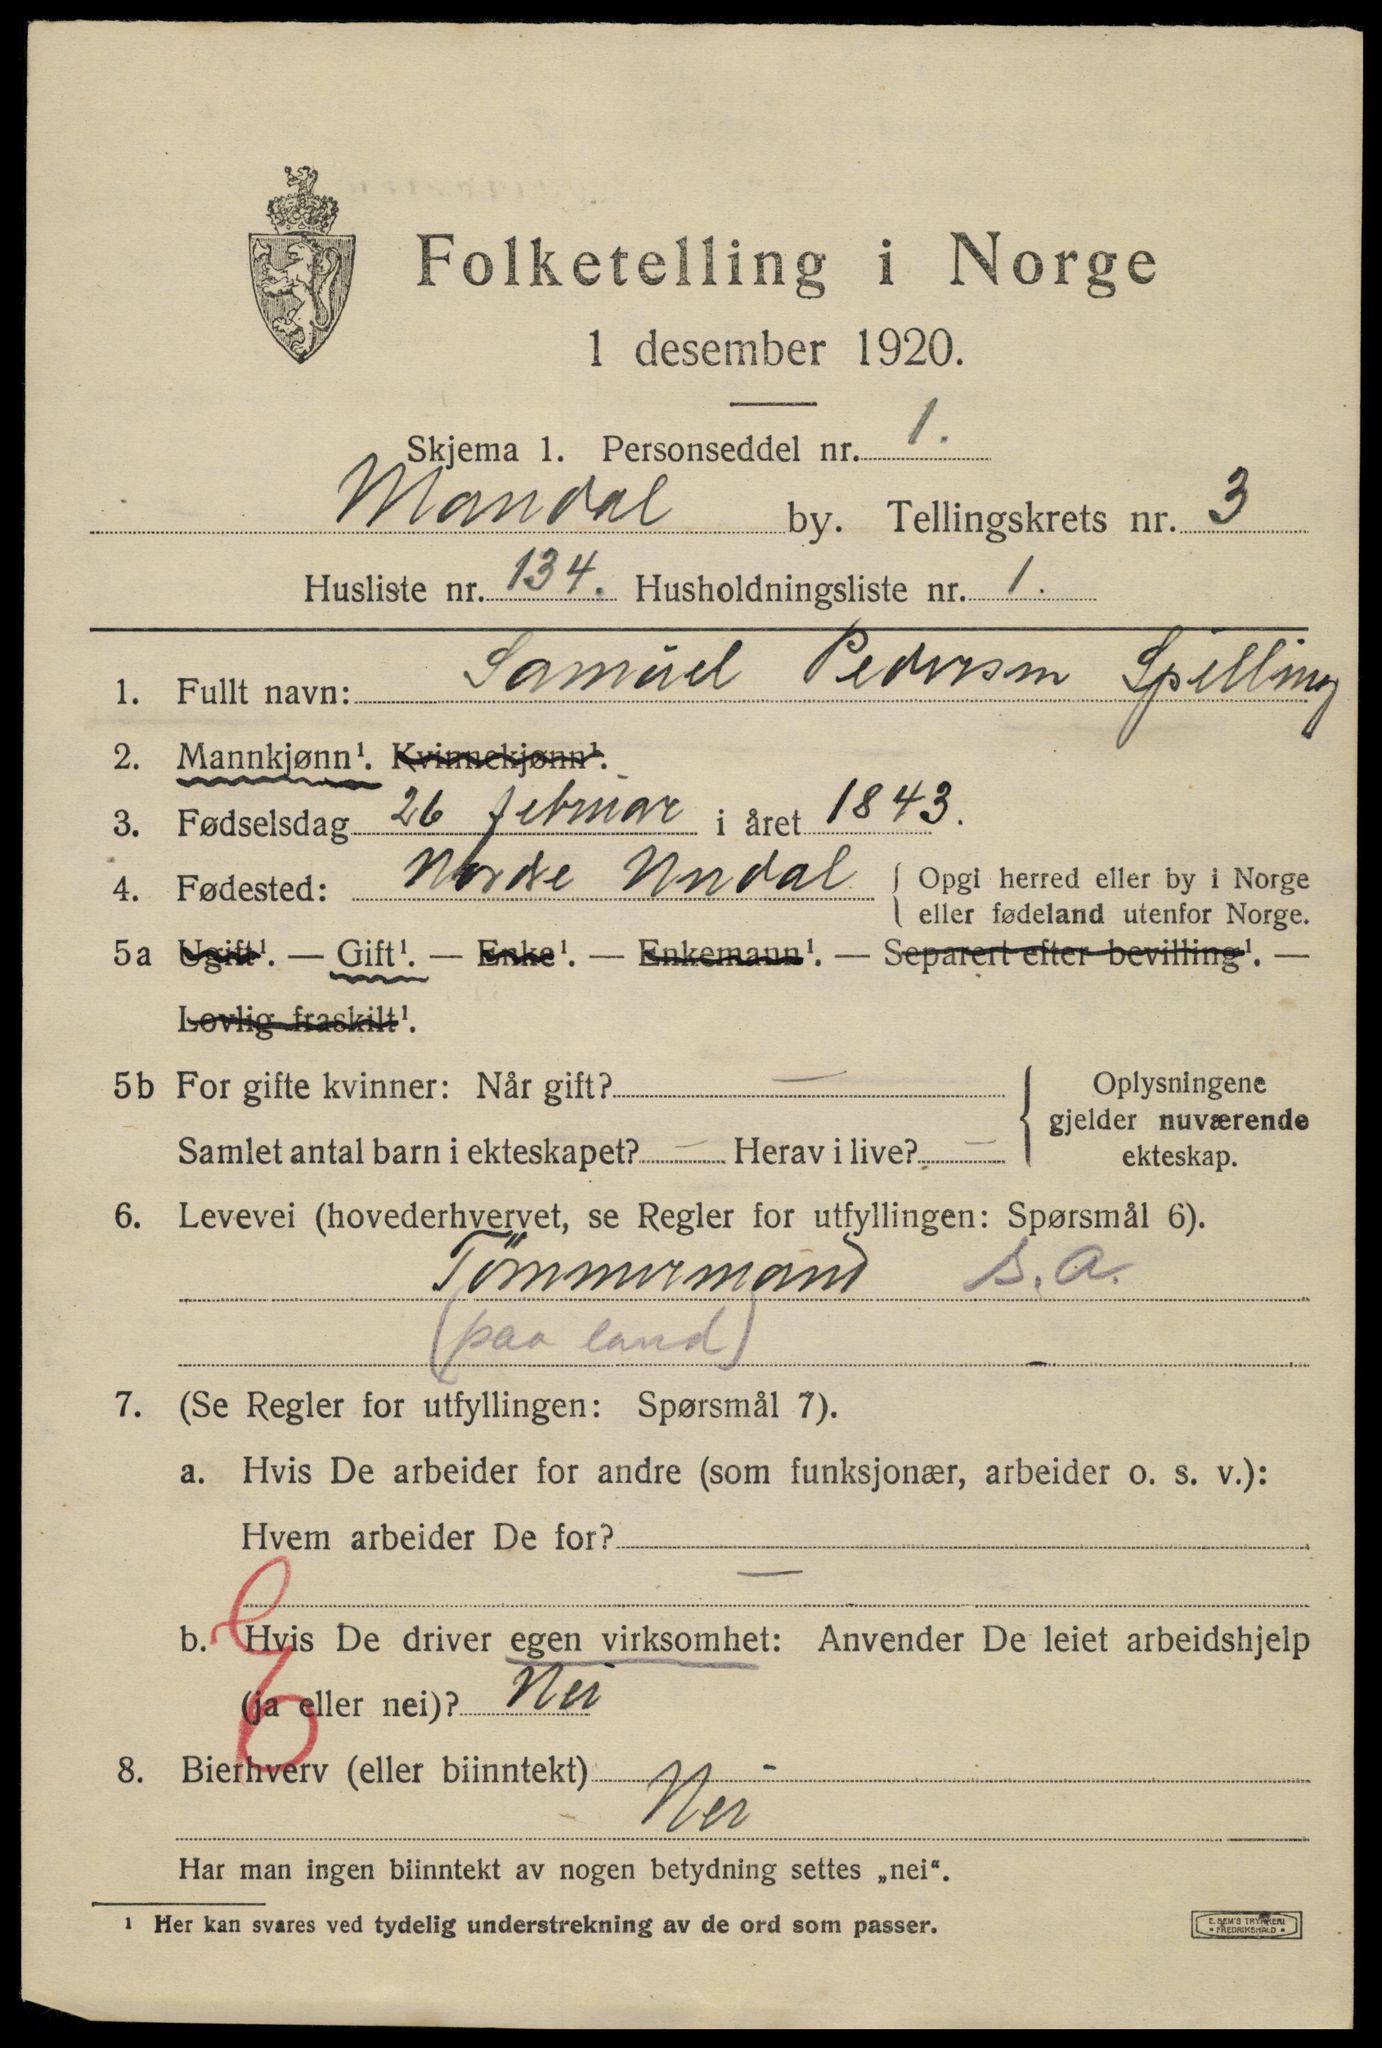 Folketelling i Norge
1 desember 1920.
Skjema 1. Personseddel nr. 1.
Mandal by. Tellingskrets nr. 3
Husliste nr. 134. Husholdningsliste nr. 1.
1. Fullt navn: Samuel Pedersen Spilling
2. Mannkjønn¹. Kvinnekjønn¹.
3. Fødselsdag 26 februar i året 1843.
4. Fødested: Nordre Undal { Opgi herred eller by i Norge
eller fødeland utenfor Norge.
5a Ugift¹. — Gift¹. — Enke¹. — Enkemann¹. — Separert efter bevilling¹. —
Lovlig fraskilt¹.
5b For gifte kvinner: Når gift? — { Oplysningene
gjelder nuværende
Samlet antal barn i ekteskapet? — Herav i live? — ekteskap.
6. Levevei (hovederhvervet, se Regler for utfyllingen: Spørsmål 6).
Tømmermand s.a.
(paa land)
7. (Se Regler for utfyllingen: Spørsmål 7).
a. Hvis De arbeider for andre (som funksjonær, arbeider o. s. v.):
Hvem arbeider De for?
—
b. Hvis De driver egen virksomhet: Anvender De leiet arbeidshjelp
(ja eller nei)? Nei
8. Bierhverv (eller biinntekt)
Nei
Har man ingen biinntekt av nogen betydning settes „nei“.
¹ Her kan svares ved tydelig understrekning av de ord som passer.
E. SEM'S TRYKKERI
FREDRIKSHALD